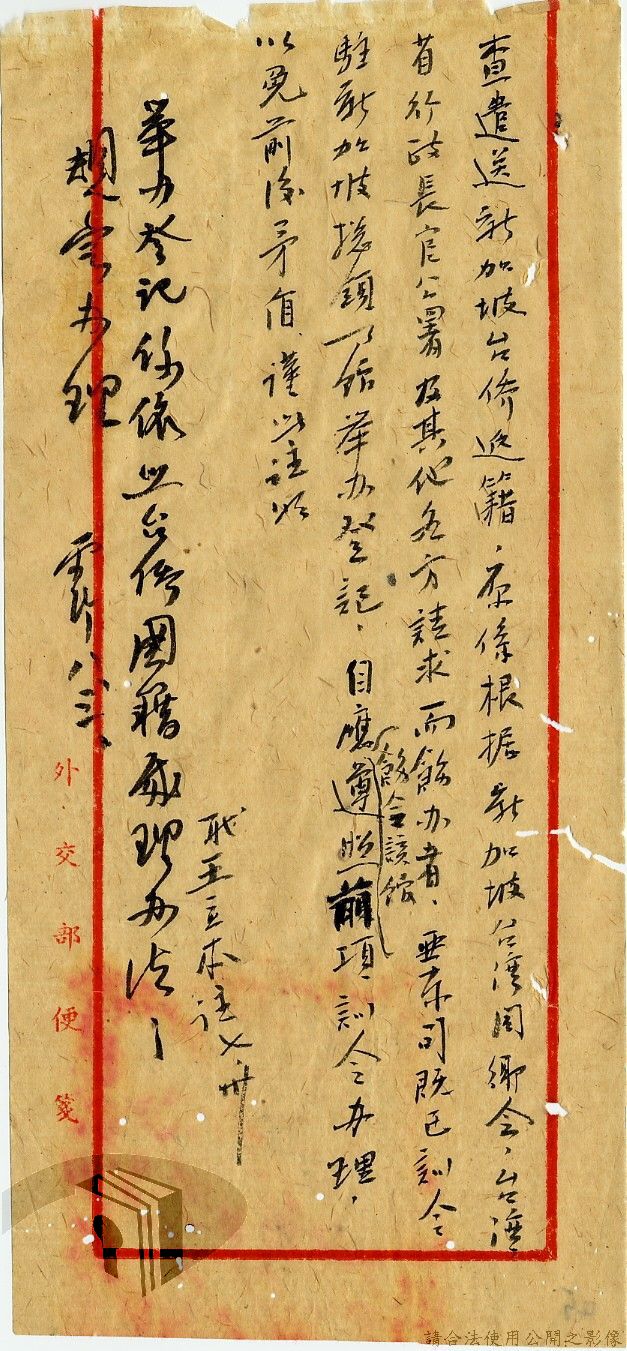 查遣送新加坡台僑返籍，原係根据新加坡台灣同鄉会，台灣
省行政長官公署及其他各方請求而飭办者，亚东司既已訓令
駐新加坡總領事館举办登記，自應遵照前項訓令办理，
飭令該館
以免前後矛盾 謹此註明
职王立本註 七、卅
举办登記係依照台僑國籍處理办法
办理
八、三、
外交部便箋
請合法使用公開之影像